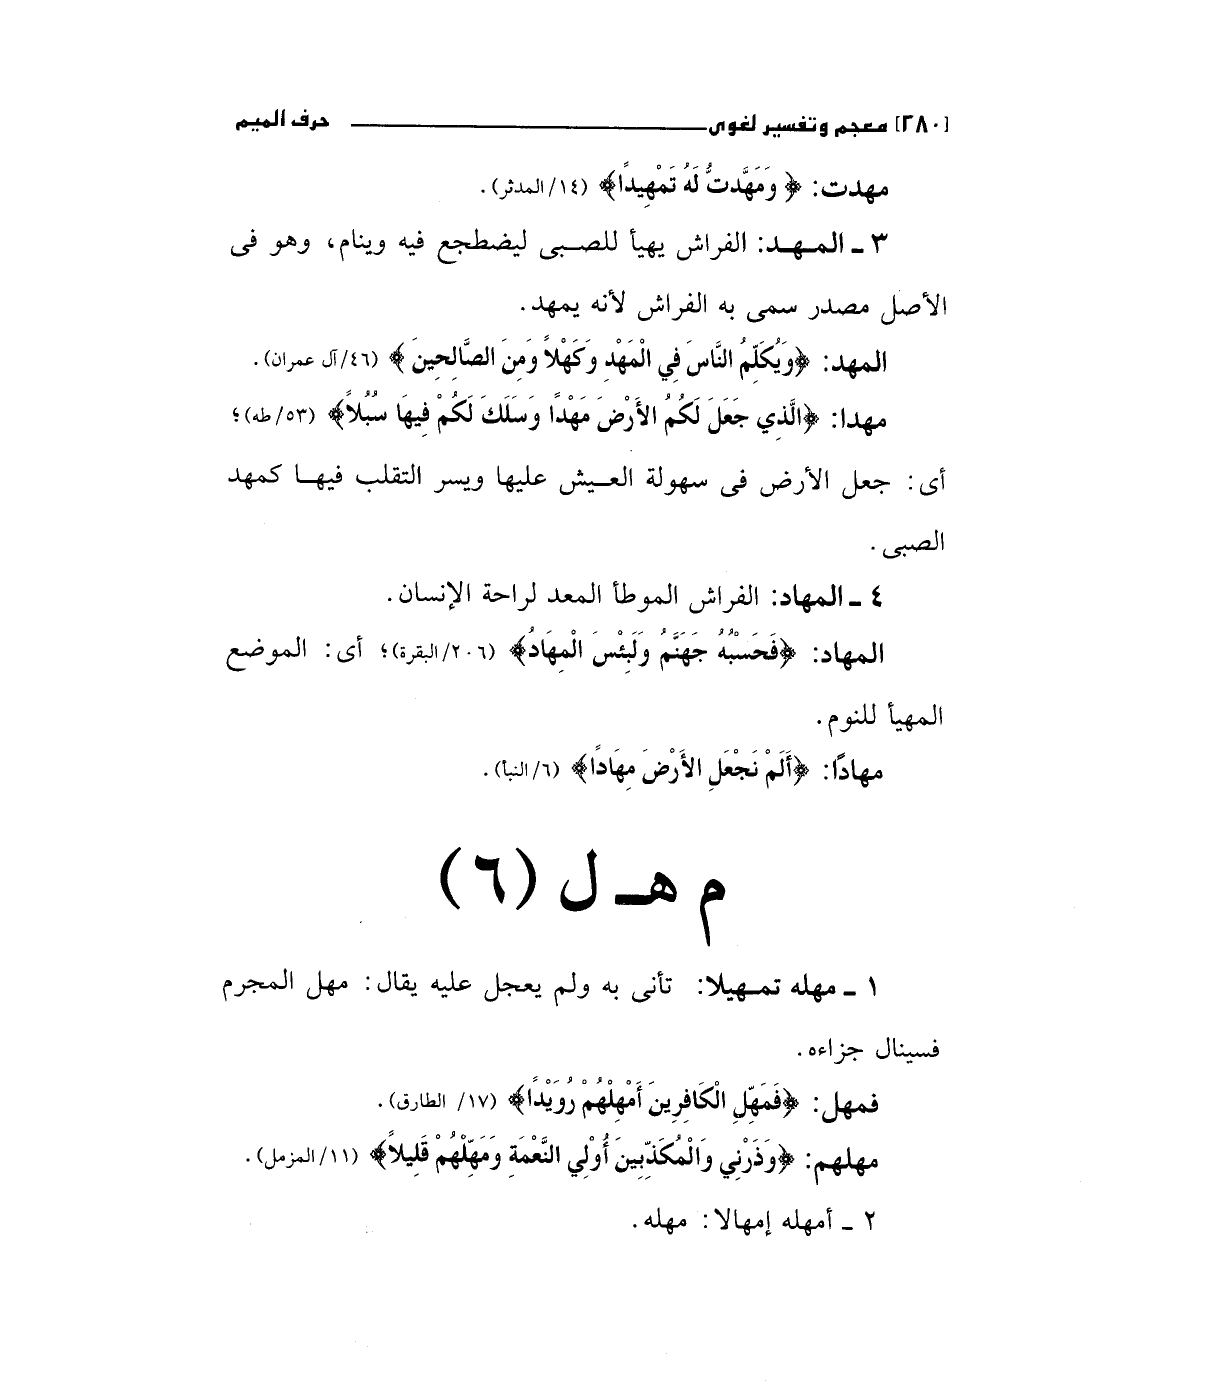 [٢٨٠] معجم وتفسير لغوى ــــــــــــــــــــ حرف الميم
مهدت: ﴿وَمَهَّدتُّ لَهُ تَمْهِيدًا﴾ (١٤/المدثر).
٣ ـ المـهـد: الفراش يهيأ للصـبى ليضطجع فيه وينام، وهو فى
الأصل مصدر سمى به الفراش لأنه يمهد.
المهد: ﴿وَيُكَلِّمُ النَّاسَ فِي الْمَهْدِ وَكَهْلاً وَمِنَ الصَّالِحِينَ﴾ (٤٦/آل عمران).
مهدا: ﴿الَّذِي جَعَلَ لَكُمُ الأَرْضَ مَهْدًا وَسَلَكَ لَكُمْ فِيهَا سُبُلاً﴾ (٥٣/طه)؛
أى: جعل الأرض فى سهولة العـيش عليها ويسر التقلب فيهـا كمهد
الصبى.
٤ ـ المهاد: الفراش الموطأ المعد لراحة الإنسان.
المهاد: ﴿فَحَسْبُهُ جَهَنَّمُ وَلَبِئْسَ الْمِهَادُ﴾ (٢٠٦/البقرة)؛ أى: الموضع
المهيأ للنوم.
مهادًا: ﴿أَلَمْ نَجْعَلِ الأَرْضَ مِهَادًا﴾ (٦/النبأ).
م هـ ل (٦)
١ ـ مهله تمـهيلا: تأنى به ولم يعجل عليه يقال: مهل المجرم
فسينال جزاءه.
فمهل: ﴿فَمَهِّلِ الْكَافِرِينَ أَمْهِلْهُمْ رُوَيْدًا﴾ (١٧/ الطارق).
مهلهم: ﴿وَذَرْنِي وَالْمُكَذِّبِينَ أُوْلِي النَّعْمَةِ وَمَهِّلْهُمْ قَلِيلاً﴾ (١١/المزمل).
٢ ـ أمهله إمهالا: مهله.